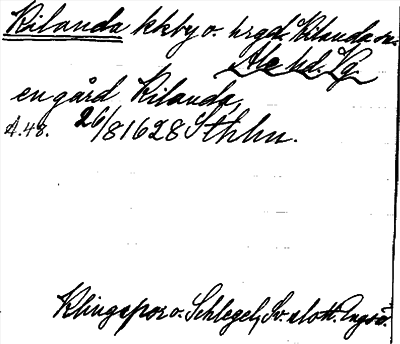 Kilanda kkby o. hrgd, Kilanda sn.
Ale hd. Vg.
en gård Kilanda,
A.48. 26/8 1628 Sthlm.
Klingspor o. Schlegel, Sv. slott. Engsö.